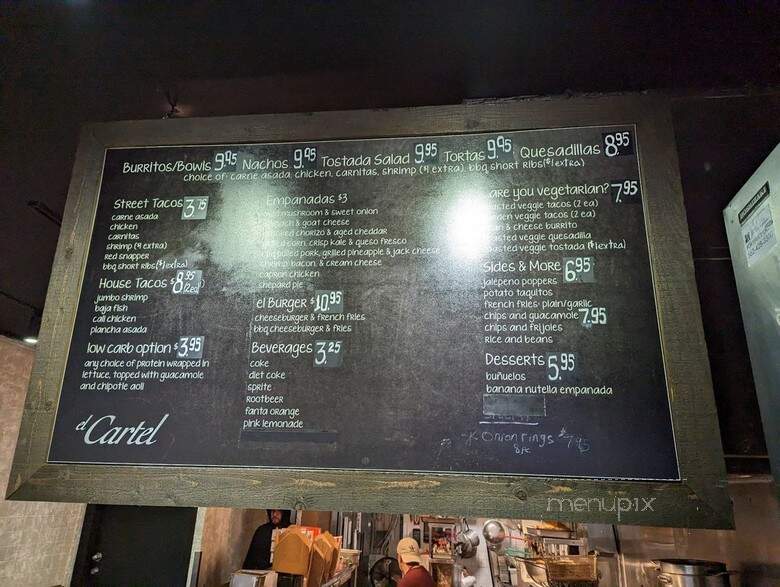 Burritos/Bowls 9.95 Nachos 9.95 Tostada Salad 9.95 Tortas 9.95 Quesadillas 8.95
choice of: carne asada, chicken, carnitas, shrimp ($1 extra), bbq short ribs($1 extra)
Street Tacos 3.75
carne asada
chicken
carnitas
shrimp ($1 extra)
red snapper
bbq short ribs($1 extra)
House Tacos $8.95
(2ea)
jumbo shrimp
baja fish
cali chicken
plancha asada
low carb option $3.95
any choice of protein wrapped in
lettuce, topped with guacamole
and chipotle aoli
el Cartel
Empanadas $3
mushroom & sweet onion
& goat cheese
chorizo & aged cheddar
corn, crisp kale & queso fresco
pulled pork, grilled pineapple & jack cheese
shrimp, bacon, & cream cheese
capron chicken
shepard pie
el Burger $10.95
cheeseburger & french fries
bbq cheeseburger & fries
Beverages 3.25
coke
diet coke
sprite
rootbeer
fanta orange
pink lemonade
are you vegetarian? 7.95
veggie tacos (2 ea)
veggie tacos (2 ea)
& cheese burrito
veggie quesadilla
veggie tostada ($1 extra)
Sides & More 6.95
jalepeno poppers
potato taquitos
french fries- plain/garlic
chips and guacamole 7.95
chips and frijoles
rice and beans
Desserts 5.95
buñuelos
banana nutella empanada
Onion rings $7.95
8pc
menupix